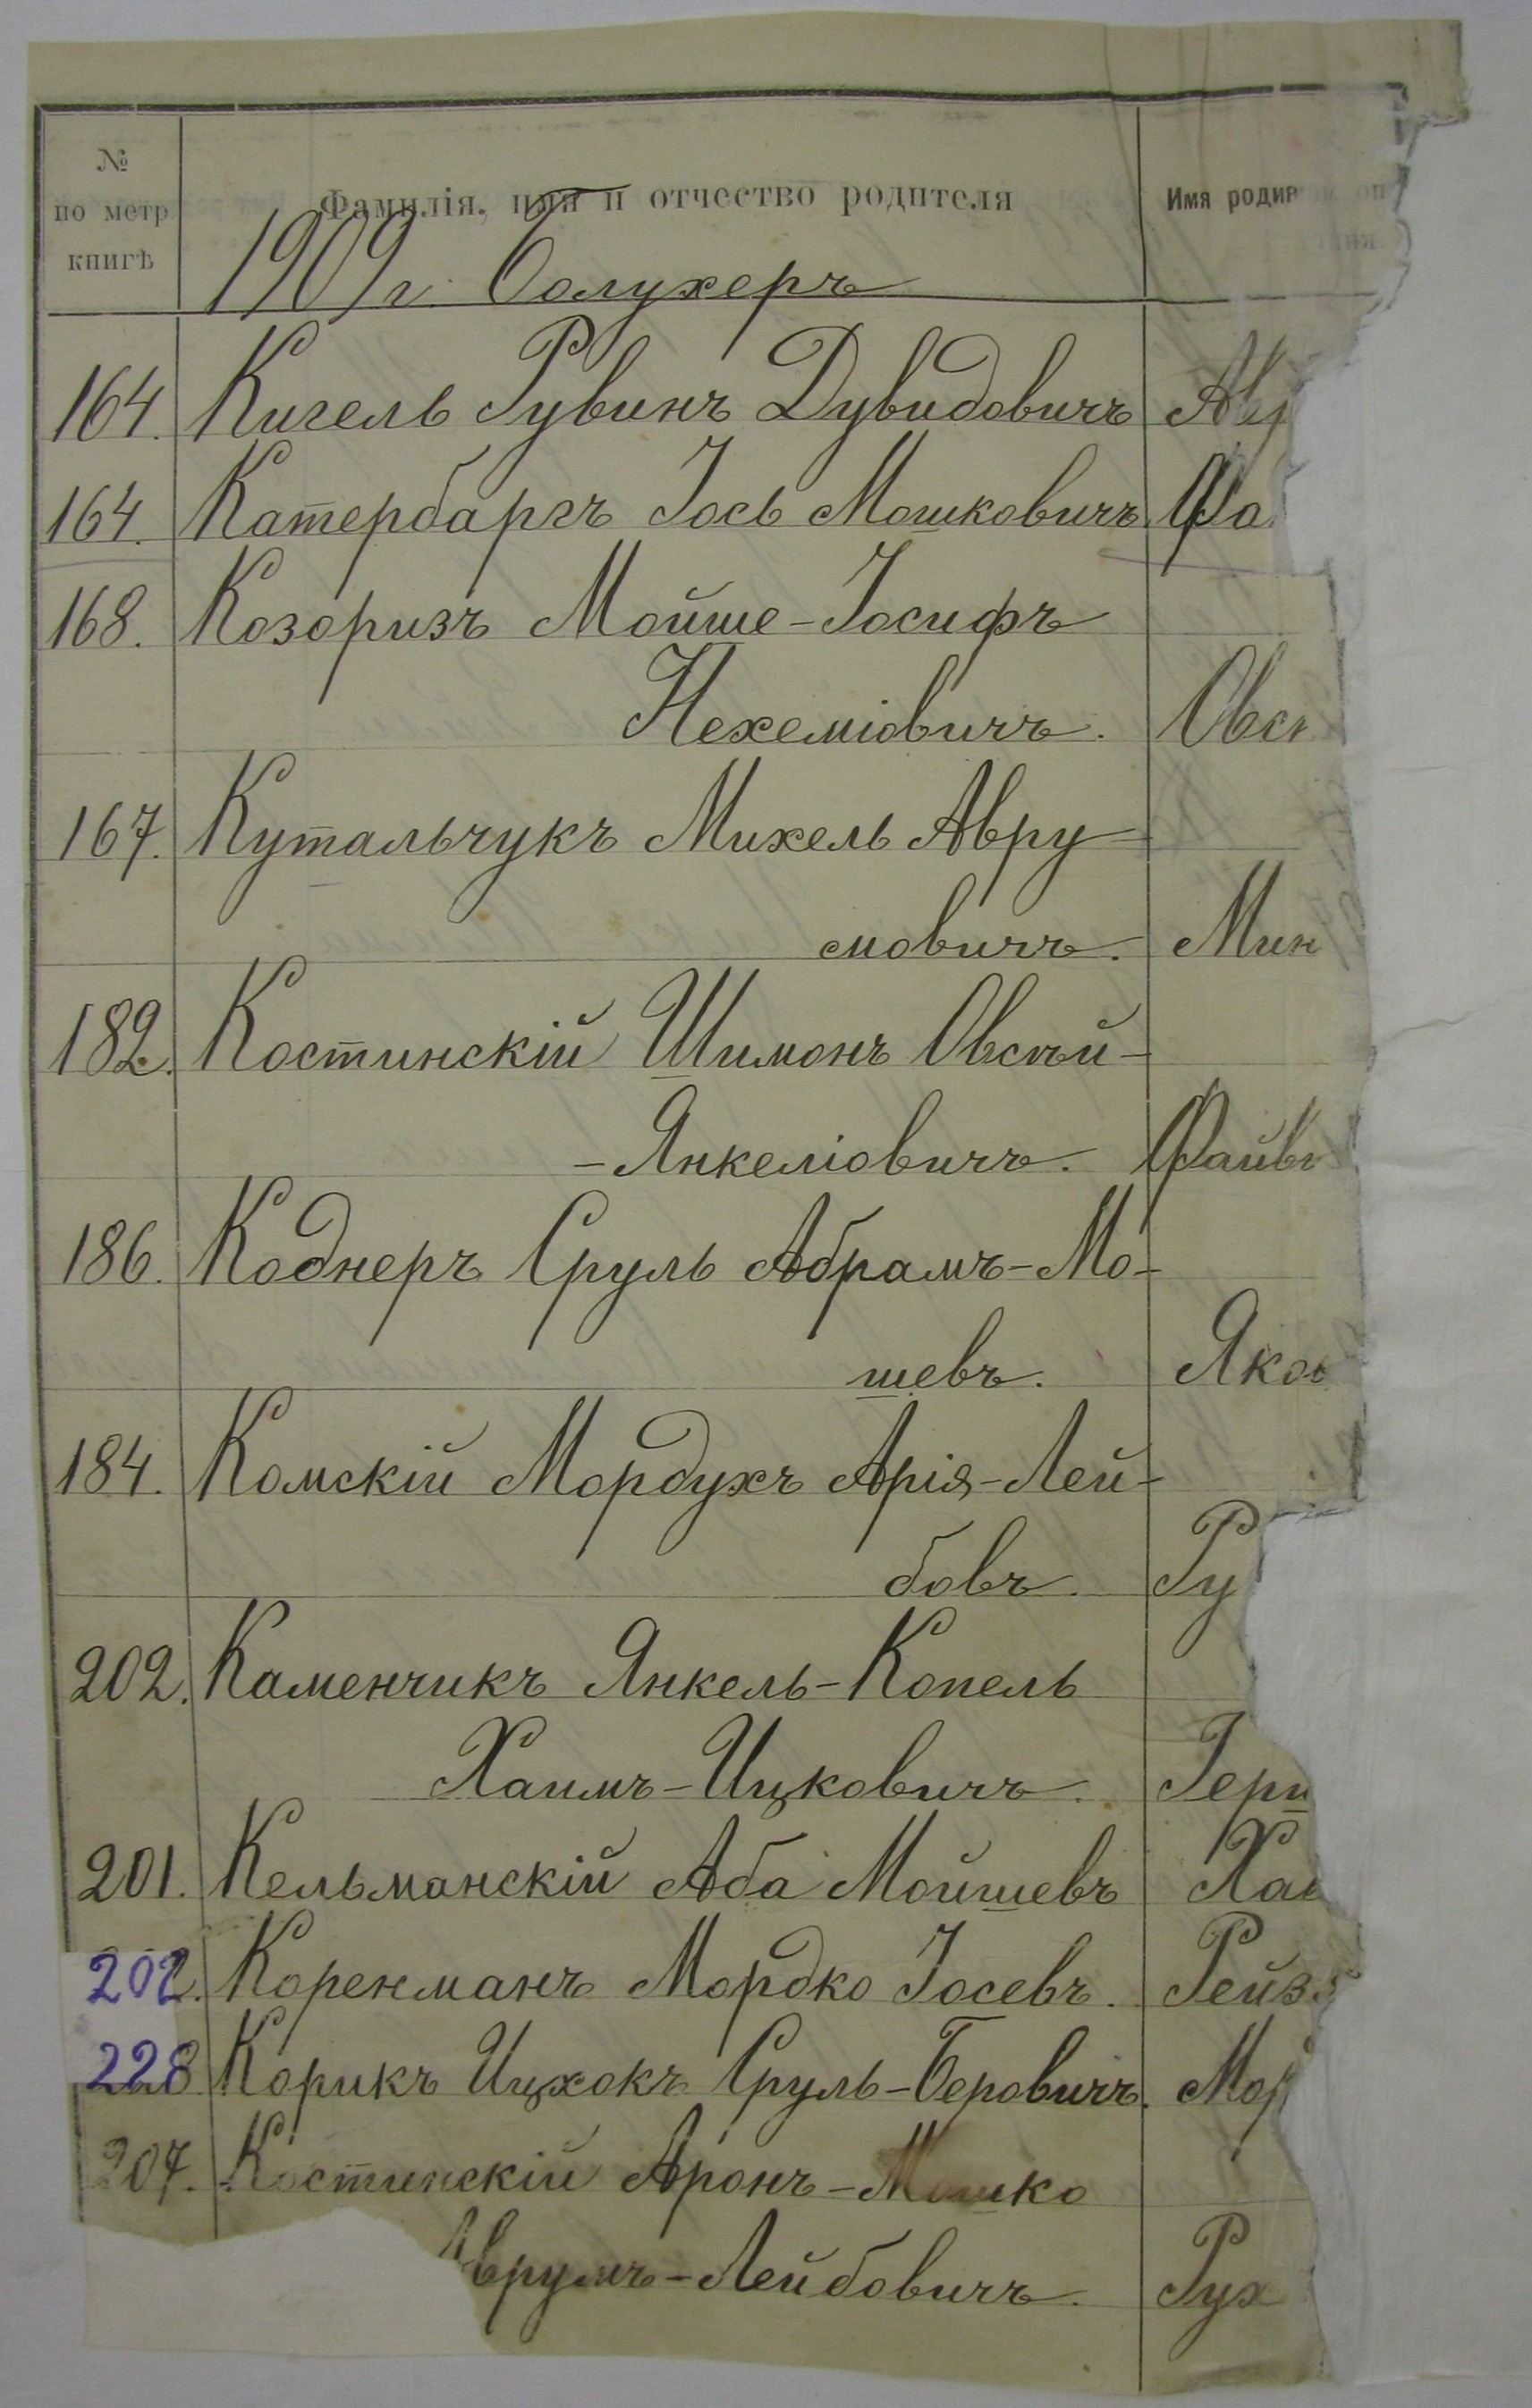 №
по метр.
книгѣ
Фамилія, имя и отчество родителя
Имя родив
1909 г. Болухеръ
164. Кигель Рувинъ Дувидовичъ
164. Катербаргъ Іось Мошковичъ Фа
168. Козоризъ Мойше-Іосифъ
Нехеміовичъ. Овс
167. Кутальчукъ Михель Авру-
мовичъ. Мин
182. Костинскій Шимонъ Овсѣй-
-Янкеліовичъ. Файв
186. Коднеръ Сруль Абрамъ-Мо-
шевъ. Яко
184. Комскій Мордухъ Арія-Лей-
бовъ. Ру
202. Каменчикъ Янкель-Копель
Хаимъ-Ицковичъ. Герш
201. Кельманскій Аба Мойшевъ Ха
202. Коренманъ Мордко Іосевъ. Рейз
228 Корикъ Ицхокъ Сруль-Беровичъ. Мор
207. Костинскій Аронъ-Мошко
Аврумъ-Лейбовичъ. Рух